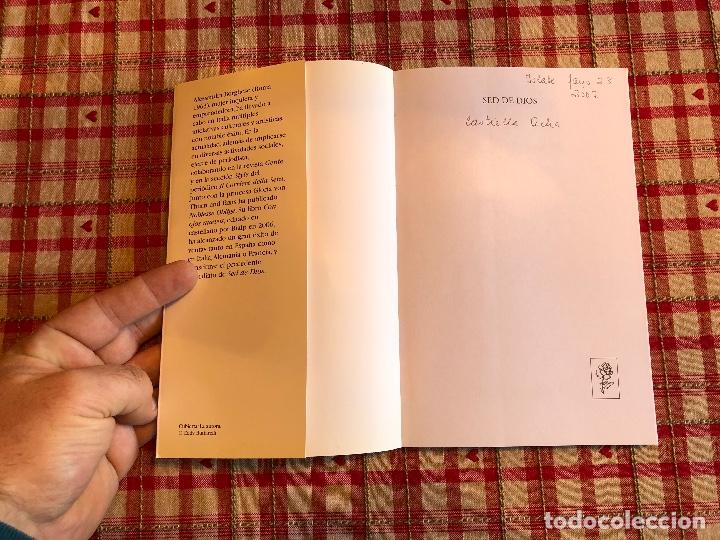 Alessandra Borghese (Roma
1963), mujer inquieta y
emprendedora, ha llevado a
cabo en Italia múltiples
iniciativas culturales y artísticas
con notable éxito. En la
actualidad, además de implicarse
en diversas actividades sociales,
ejerce de periodista,
colaborando en la revista Gente
y en la sección Style del
periódico Il Corriere della Sera.
Junto con la princesa Gloria von
Thurn und Taxis ha publicado
Noblesse Oblige. Su libro Con
ojos nuevos, editado en
castellano por Rialp en 2006,
ha alcanzado un gran éxito de
ventas tanto en España como
en Italia, Alemania o Francia, y
constituye el precedente
inmediato de Sed de Dios.
Cubierta: La autora.
©
23
2007
SED DE DIOS
todocoleccion
todocoleccion.net